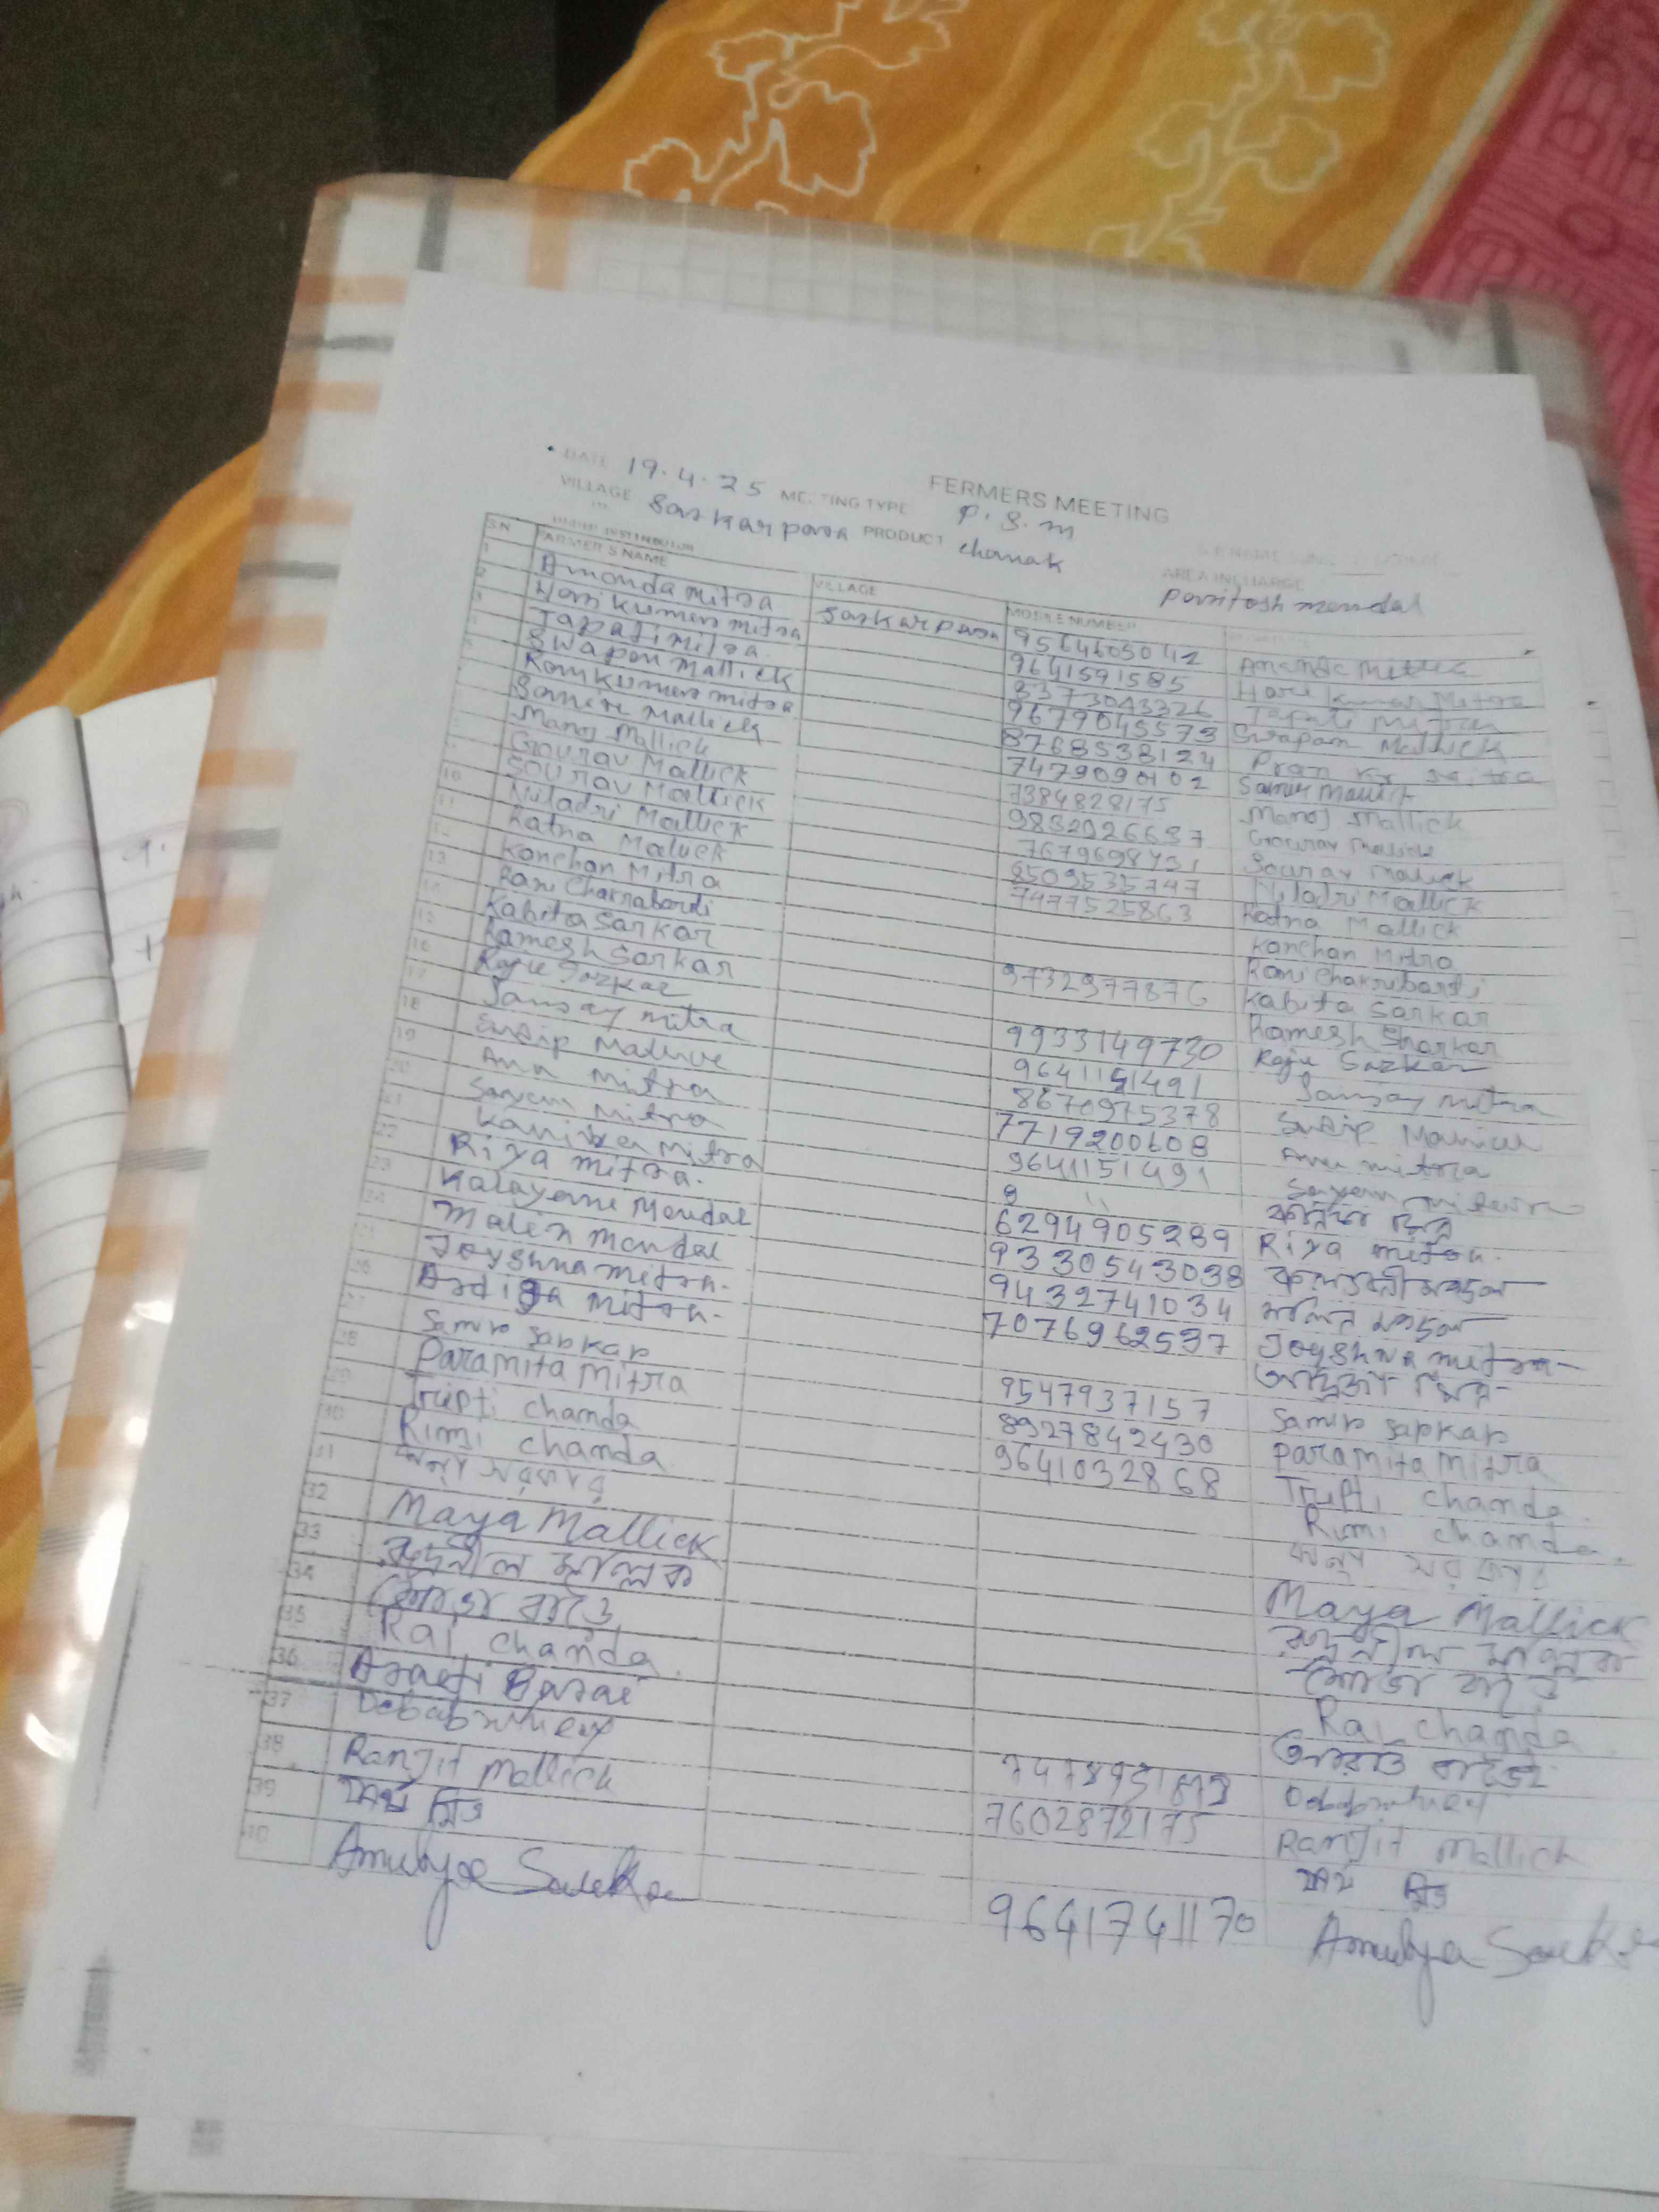 FERMERS MEETING
DATE 19.4.25 MEETING TYPE P.S.M
VILLAGE Sarkarpara PRODUCT chamak
AREA INCHARGE
Paritosh mondal
S.N FARMER'S NAME VILLAGE MOBILE NUMBER
1 Amonda mitra Sarkarpara 9564605042
2 Hari kumar mitra 9641591585 Hari Kumar Mitra
3 Tapati mitra. 8373043326 Tapati Mitra
Swapon Mallick 9679045573 Swapan Mallick
Ramkumar mitra 8768538124
Samir Mallick 7479090102 Samir Mallick
Manoj Mallick 7384828175 Manoj Mallick
Gourav Mallick Gourav Mallick
Sourav Mallick 7679698731 Sourav Mallick
10 Niladri Mallick 8509535747 Niladri Mallick
11 Ratna Mallick 7477525863 Ratna Mallick
12 Kanchan Mitra Kanchan Mitra
13 Rani Chakrabordi Rani Chakrabordi
14 Kabita Sarkar 9732977876 Kabita Sarkar
15 Ramesh Sarkar Ramesh Sharkar
16 Raju Sarkar 9933149730 Raju Sarkar
17 Sanjay mitra 9641151491 Sanjay mitra
18 Sudip Mallick 8670975378 Sudip Mallick
19 Anu Mitra 7719200608 Anu mitra
20 Sayan Mitra 9641151491 Sayan mitra
21 Kanika Mitra 9 " কনিকা মিত্র
22 Riya mitra. 6294905289 Riya mitra.
23 Kalayani Mondal 9330543038 কল্যাণী মণ্ডল
24 Malin Mondal 9432741034 মলিন মণ্ডল
25 Joyshna mitra. 7076962537 Joyshna mitra
26
27 Samir Sarkar 9547937157 Samir Sarkar
28 Paramita Mitra 8927842430 Paramita Mitra
29 Tripti chanda 9641032868 Tripti chanda.
30 Rimi chanda Rimi chanda.
31 সরকার সরকার
32 Maya Mallick Maya Mallick
33 রুদ্রনীল মল্লিক রুদ্রনীল মল্লিক
34
35 Raj chanda. Raj chanda
36 Arati Barai আরতি বাড়ই
37
38 Ranjit Mallick 7602872175 Ranjit Mallick
39 মিত্র মিত্র
40 Amulya Sarkar 9641741170 Amulya Sarkar